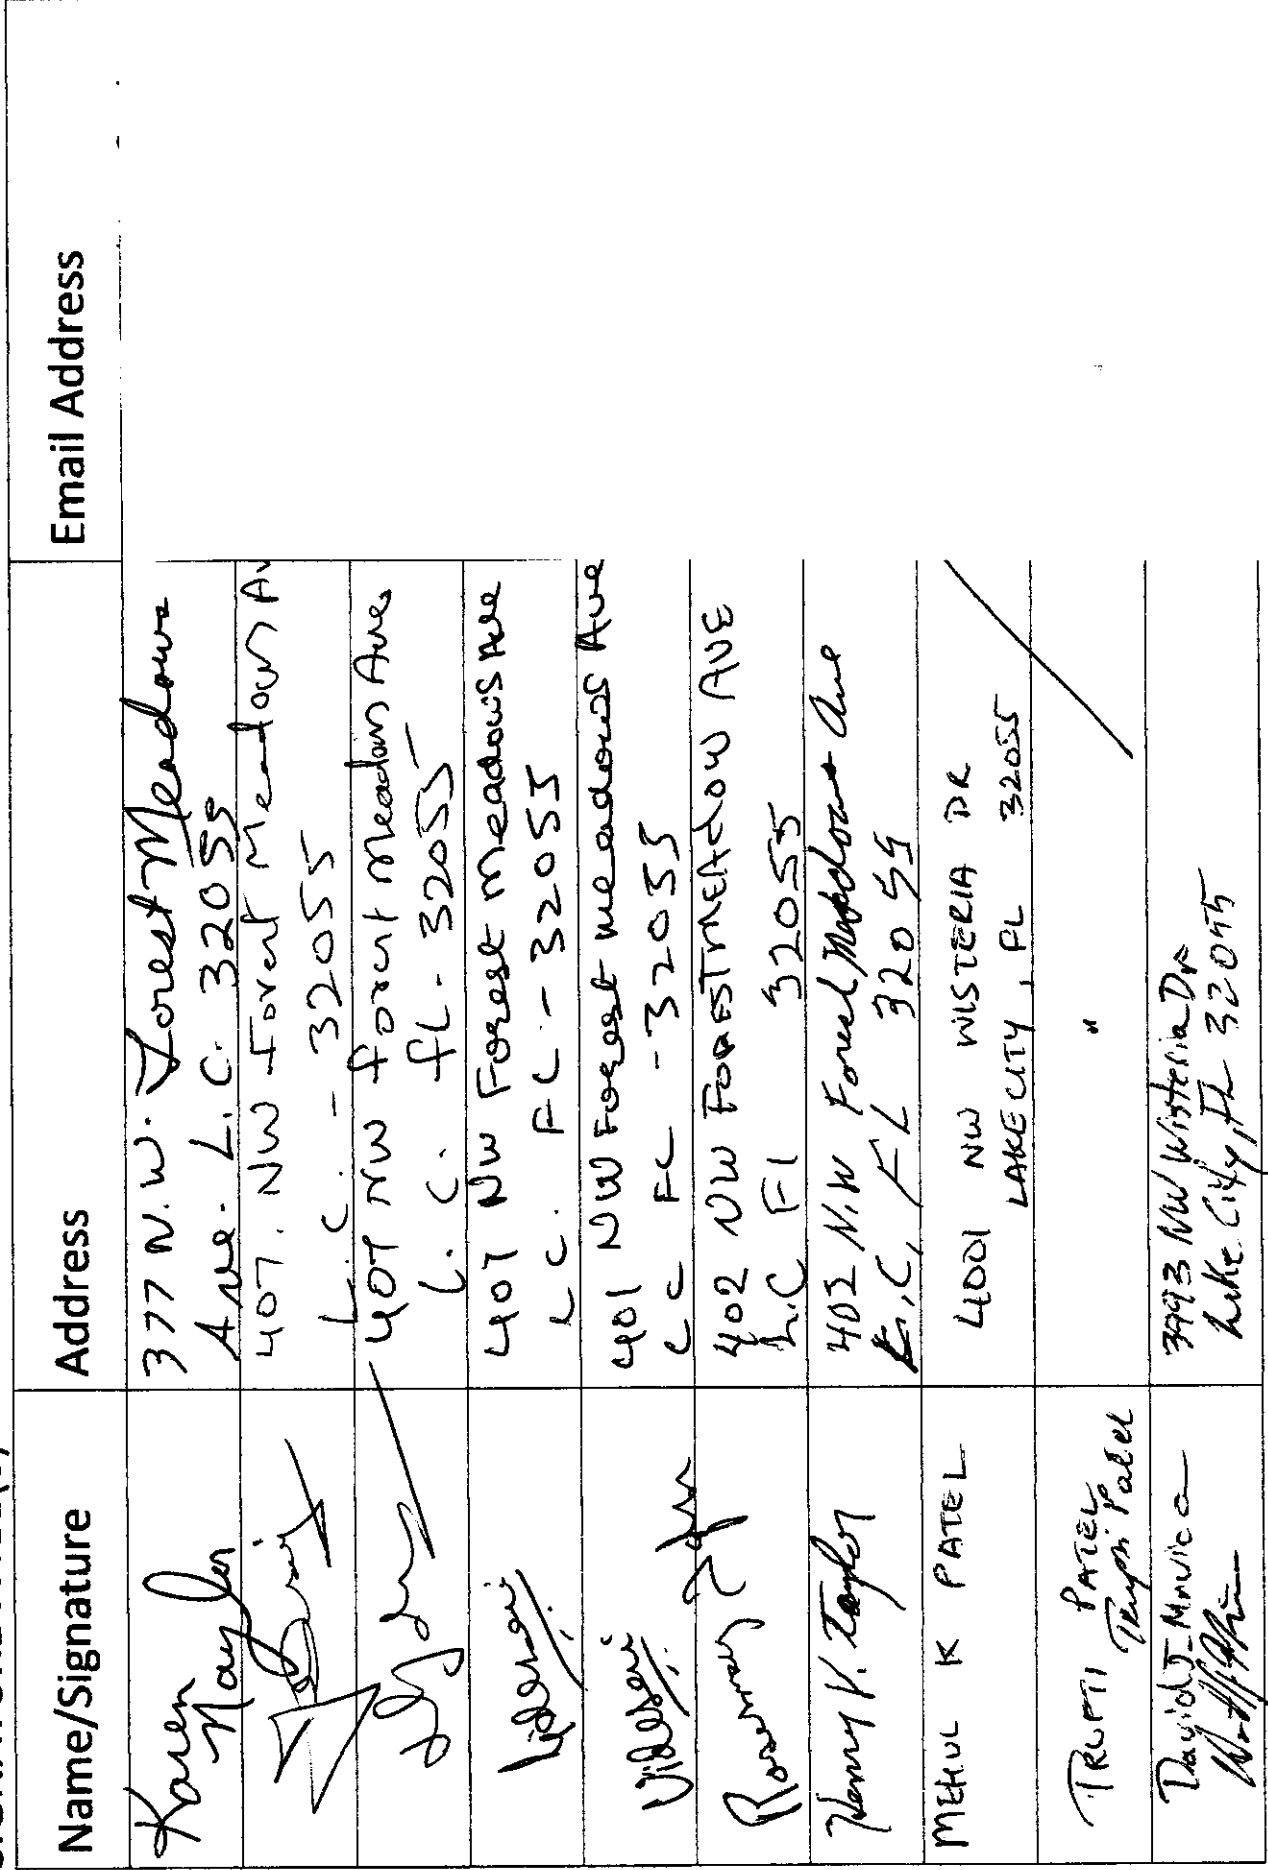 Name/Signature Address Email Address
Karen
Naylor
377 N.W. Forest Meadows
Ave. L.C. 32055
407. NW Forest Meadows Av
L.C. - 32055
407 NW Forest Meadows Ave
L. C. FL - 32055
407 NW Forest Meadows Ave
L C. FL - 32055
401 NW Forest meadows Ave
L C FL - 32055
Rosemary
402 NW FORESTMEADOW AVE
L.C Fl 32055
Henry V. Taylor
402 N.W Forest Meadows Ave
L.C, FL 32055
MEHUL K PATEL
4001 NW WISTERIA DR
LAKE CITY, FL 32055
TRUPTI PATEL
Trupti Patel
"
David J Mavica
3993 NW Wisteria Dr
Lake City, FL 32055